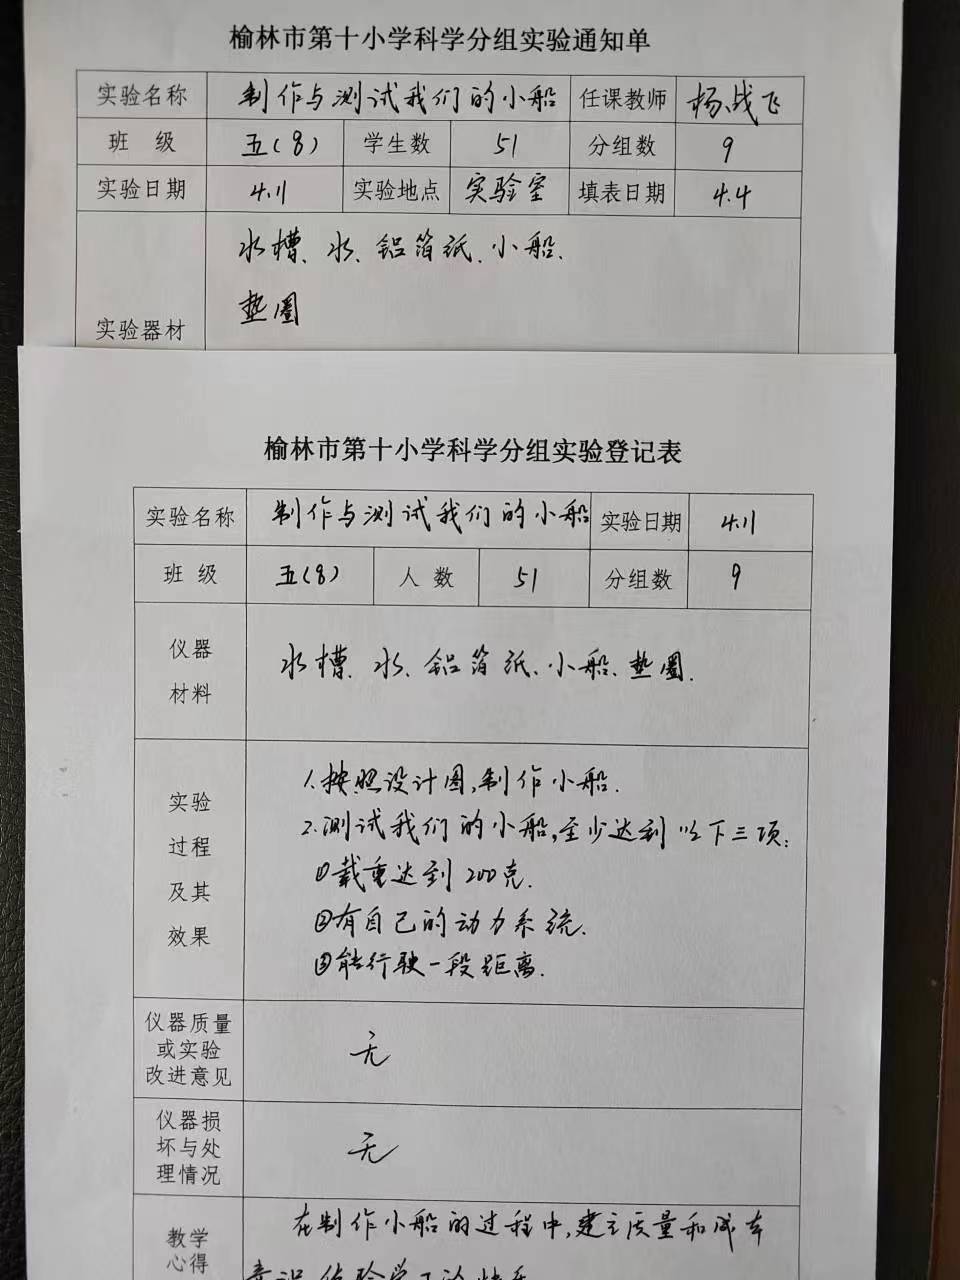 榆林市第十小学科学分组实验通知单
实验名称 制作与测试我们的小船 任课教师 杨战飞
班 级 五(8) 学生数 51 分组数 9
实验日期 4.11 实验地点 实验室 填表日期 4.4
水槽、水、铝箔纸、小船、
垫圈
实验器材
榆林市第十小学科学分组实验登记表
实验名称 制作与测试我们的小船 实验日期 4.11
班 级 五(8) 人 数 51 分组数 9
仪器
材料
水槽、水、铝箔纸、小船、垫圈.
实验
过程
及其
效果
1.按照设计图,制作小船.
2.测试我们的小船,至少达到以下三项:
①载重达到200克.
②有自己的动力系统.
③能行驶一段距离.
仪器质量
或实验
改进意见
无
仪器损
坏与处
理情况
无
教学
心得
在制作小船的过程中,建立质量和成本